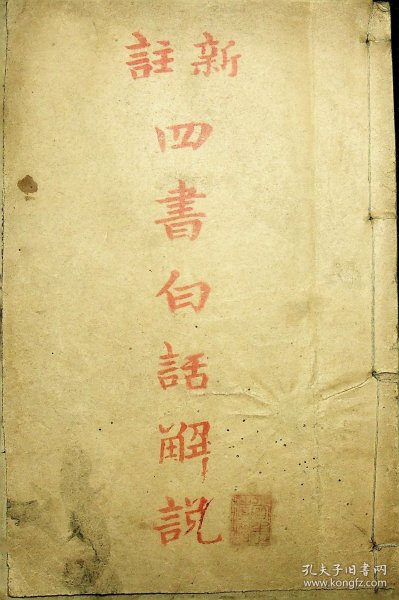 新註
四書白話解説
孔夫子旧書网
www.kongfz.com